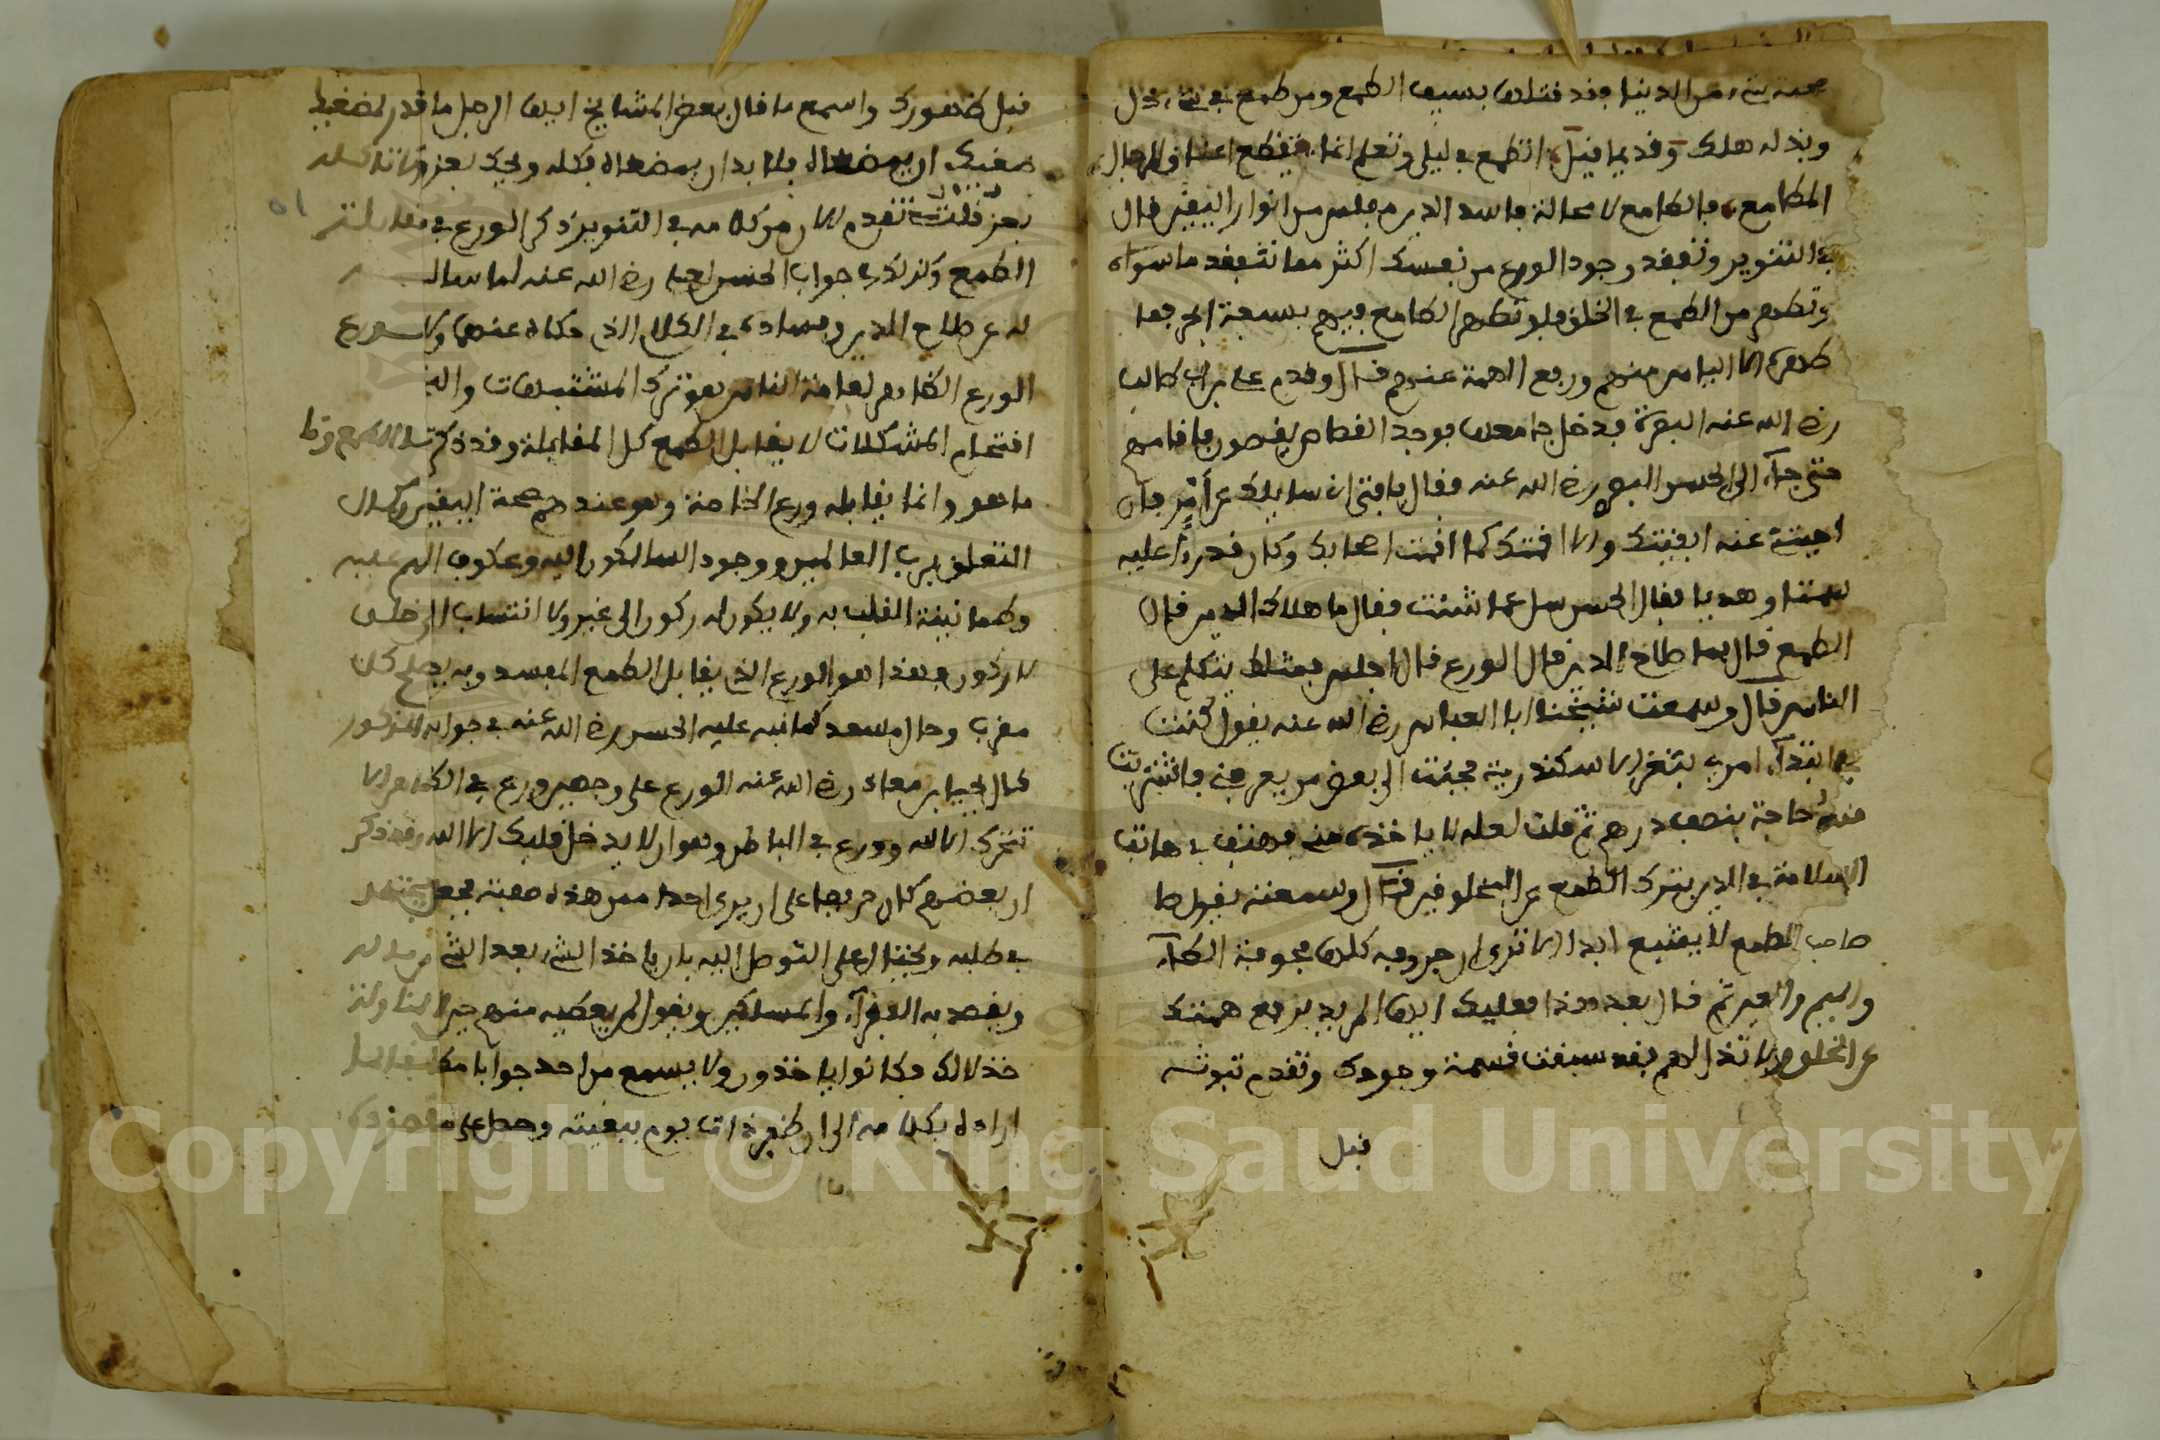 محبة شيء من الدنيا وقد قتلها بسيف الطمع ومن طمع في شيء ذل
وبذله هلك وقد يما قيل اتطمع في ليلى وتعلم انما تقطع اعناق الرجال
المطامع فالطامع لا محالة فاسد الدين مفلس من انوار اليقين قال
في التنوير وتفقد وجود الورع من نفسك اكثر مما تتفقد ما سواه
وتطهر من الطمع في الخلق فلو تطهر الطامع فيهم بسبعة ابحر فما
طهره الا الياس منهم ورفع الهمة عنهم قال وقدم علي بن ابي طالب
رضي الله عنه البصرة فدخل جامعها فوجد القصاص يقصون فاقامهم
حتى جاء الى الحسن البصري رضي الله عنه فقال يا فتى اني سايلك عن امر فان
اجبتني عنه ابقيتك والا اقمتك كما اقمت اصحابك وكان قد راى عليه
سمتا وهديا فقال الحسن سل عما شئت فقال ما ملاك الدين قال
الطمع قال فما صلاح الدين قال الورع قال اجلس فمثلك يتكلم على
الناس قال وسمعت شيخنا ابا العباس رضي الله عنه يقول كنت
في ابتداء امري بثغر الاسكندرية فجئت الى بعض من يعرفني فاشتريت
منه حاجة بنصف درهم ثم قلت لعله لا ياخذه مني فهتف بي هاتف
السلامة في الدين بترك الطمع في المخلوقين قال وسمعته يقول
صاحب الطمع لا يشبع ابدا الا ترى ان حروفه كلها مجوفة الطاء
والميم والعين ثم قال بعد هذا فعليك ايها المريد برفع همتك
عن الخلق ولا تذل لهم فقد سبقت قسمته وجودك وتقدم ثبوته
قبل
قبل ظهورك واسمع ما قال بعض المشايخ ايها الرجل ما قدر لماضغيك
ان يمضغاه فلا بد ان يمضغاه فكله ويحك بعز ولا تاكله
بذل قلت تقدم الان من كلامه في التنوير ذكر الورع في مقابلة
الطمع وكذلك في جواب الحسن لعلي رضي الله عنه لما ساله
له عن صلاح الدين وفساده في الكلام الذي حكاه عنهما
الورع الظاهر لعامة الناس هو ترك المتشبهات
اقتحام المشكلات لا يقابل الطمع كل المقابلة وقد ذكرته
ما هو وانما يقابله ورع الخاصة وهو عندهم صحة اليقين وكمال
التعلق برب العالمين ووجود السكون اليه وعكوف الهم عليه
وطمانينة القلب به ولا يكون له ركون الى غير ولا انتساب الى خلق
فهذا هو الورع الذي يقابل الطمع المفسد وبه يصلح كل
مقرب وحال مسعد كما نبه عليه الحسن رضي الله عنه في جوابه المذكور
قال يحيى بن معاذ رضي الله عنه الورع على وجهين ورع في الظاهر الا
تتحرك الا لله وورع في الباطن وهو ان لا يدخل قلبك الا الله وقد ذكر
ان بعضهم كان حريصا على ان يرى احدا ممن هذه صفته فجعل يجتهد
في طلبه ويحتال على التوصل اليه بان ياخذ الشيء بعد الشيء من ماله
ويقصد به الفقراء والمساكين ويقول لمن يعطيه منهم
خذ لا لك فكانوا ياخذون ولا يسمع من احد جوابا مطابقا
اراده بكلامه الى ان ظفر ذات يوم ببغيته وحصل على مقصوده